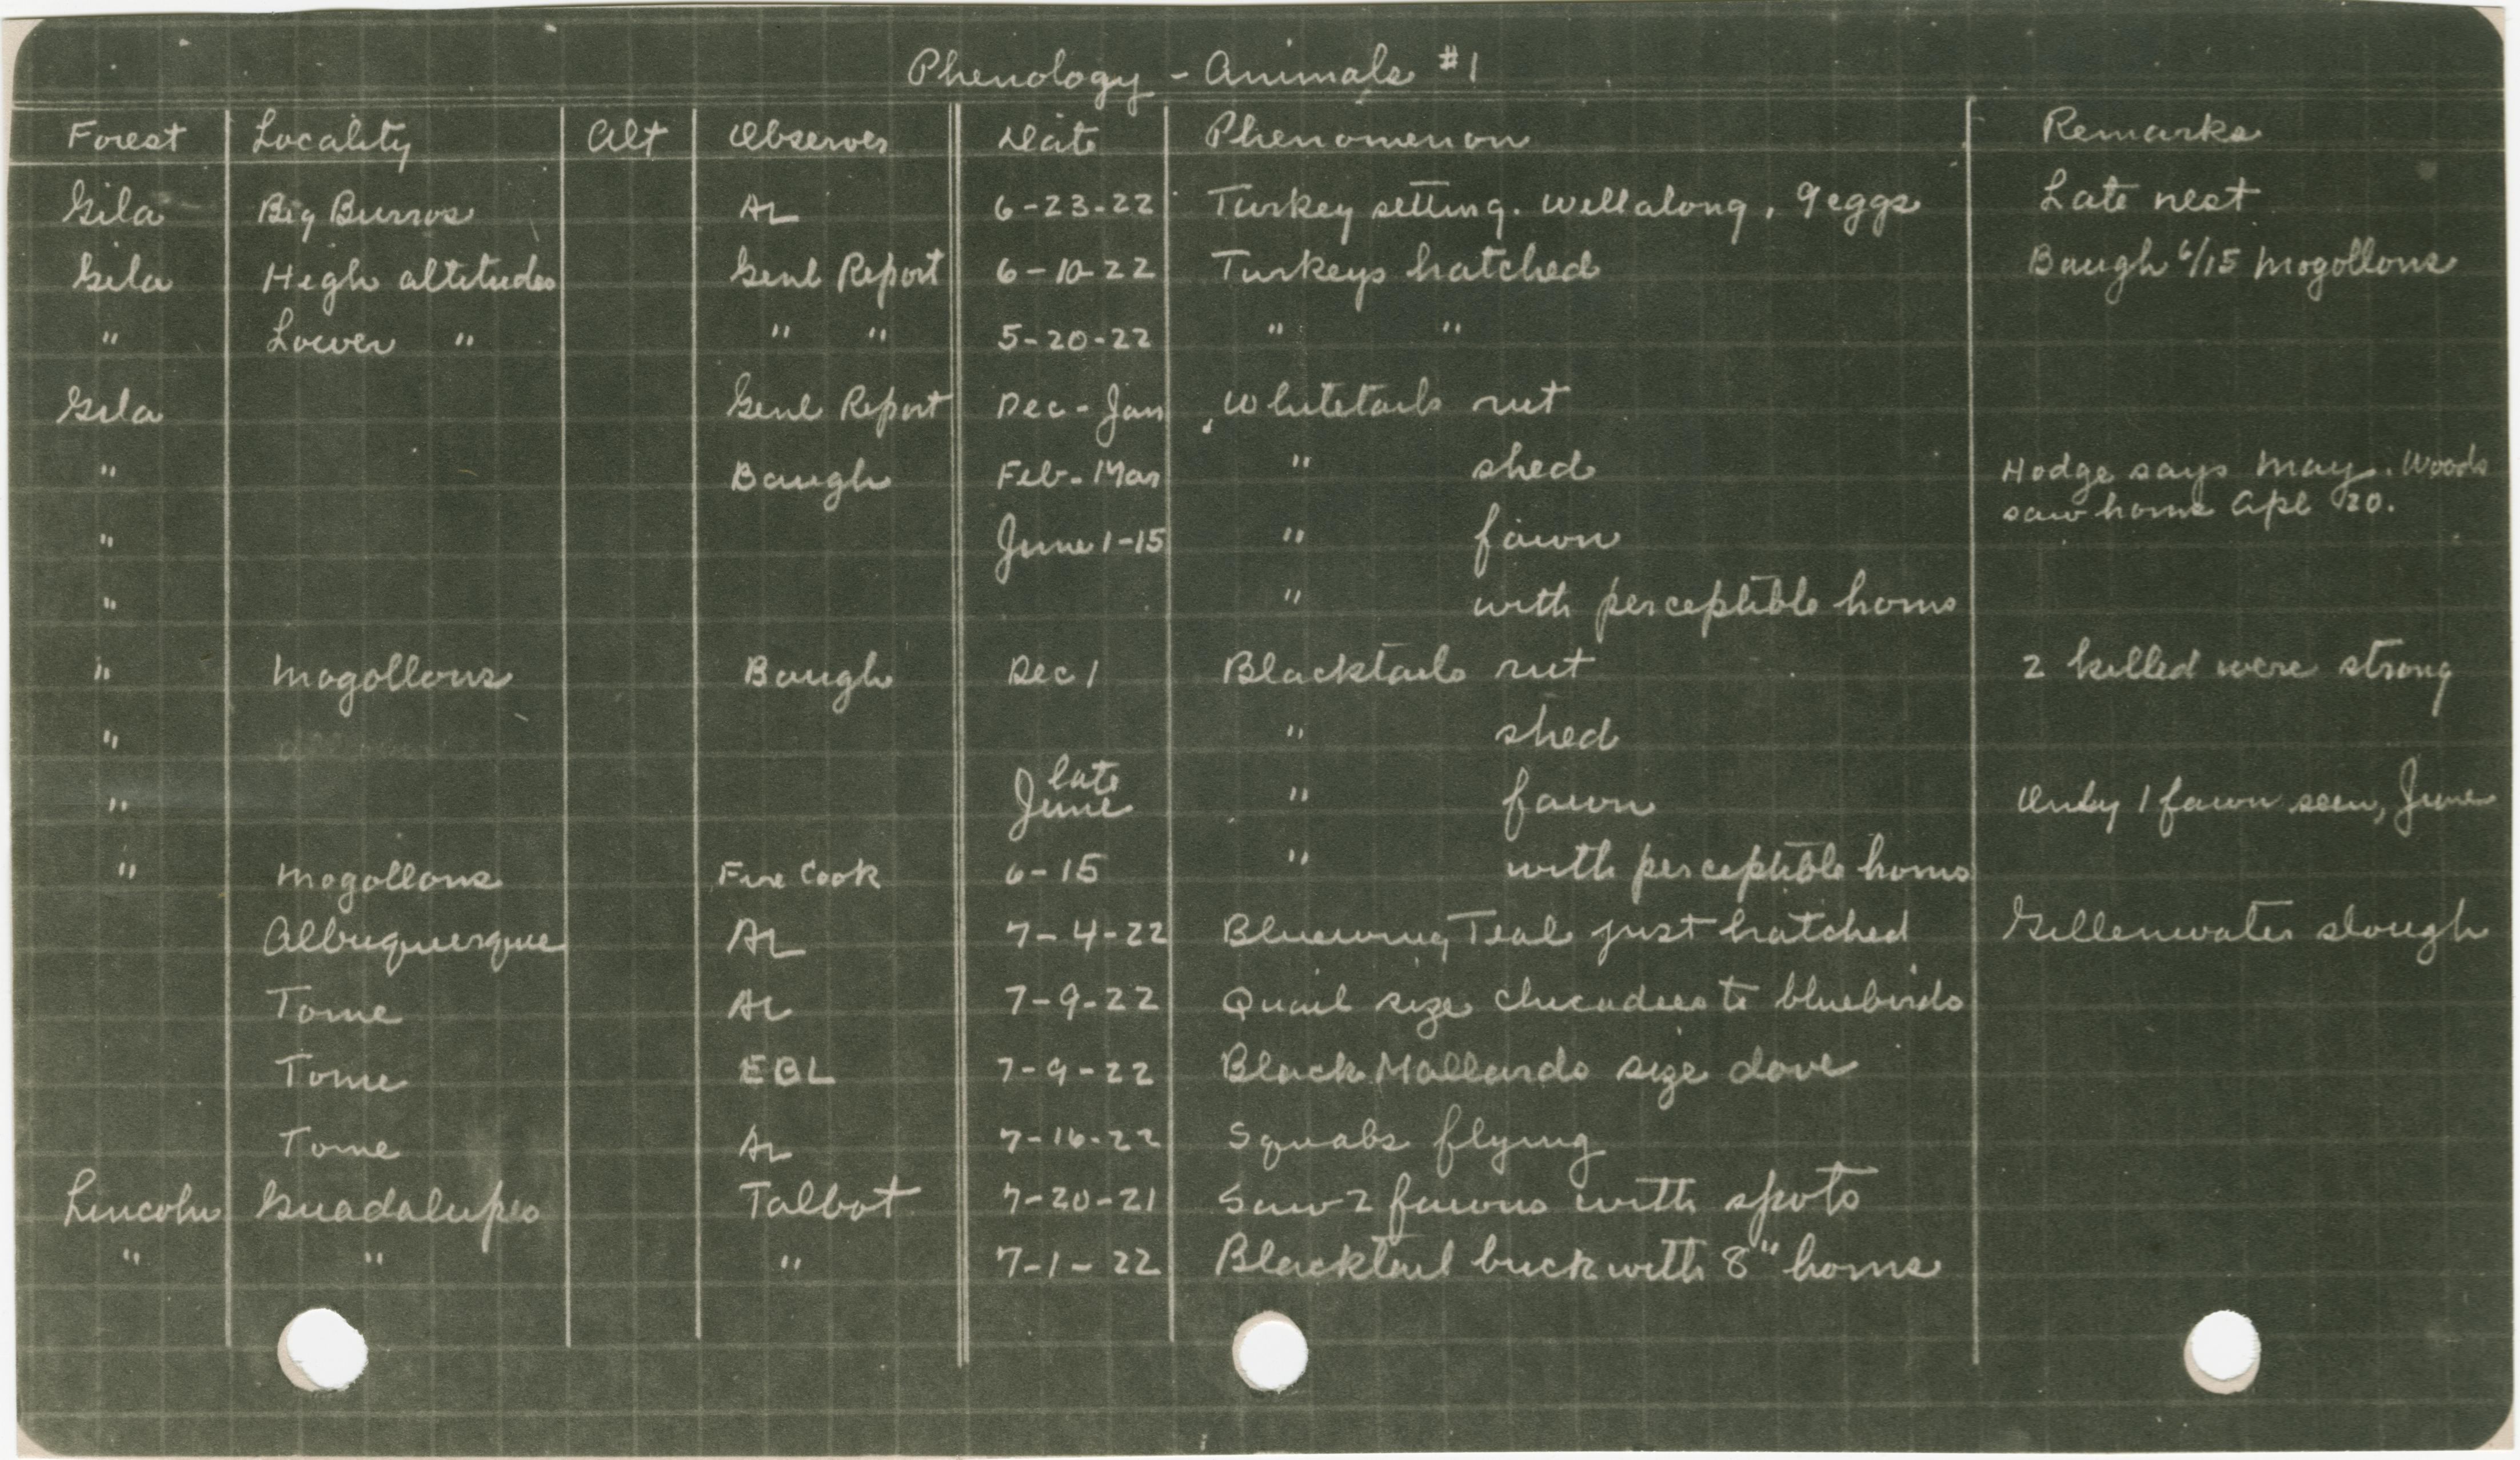 Phenology - Animals #1
Forest Locality Alt Observer Date Phenomenon Remarks
Gila Big Burros AL 6-23-22 Turkey setting. Well along, 9 eggs Late nest
Gila High altitudes Genl Report 6-10-22 Turkeys hatched Baugh 6/15 Mogollons
" Lower " " " 5-20-22 " "
Gila Genl Report Dec-Jan Whitetails rut
" Baugh Feb-Mar " shed Hodge says May. Woods
saw horns Apl 20.
" June 1-15 " fawn
" " with perceptible horns
" Mogollons Baugh Dec 1 Blacktails rut 2 killed were strong
" " shed
" late June " fawn Only 1 fawn seen, June
" Mogollons Fire Cook 6-15 " with perceptible horns
Albuquerque AL 7-4-22 Bluewing Teal just hatched Gillenwater slough
Tome AL 7-9-22 Quail size chicadees to bluebirds
Tome EBL 7-9-22 Black Mallards size dove
Tome AL 7-16-22 Squabs flying
Lincoln Guadalupes Talbot 7-20-21 Saw 2 fawns with spots
" " " 7-1-22 Blacktail buck with 8" horns